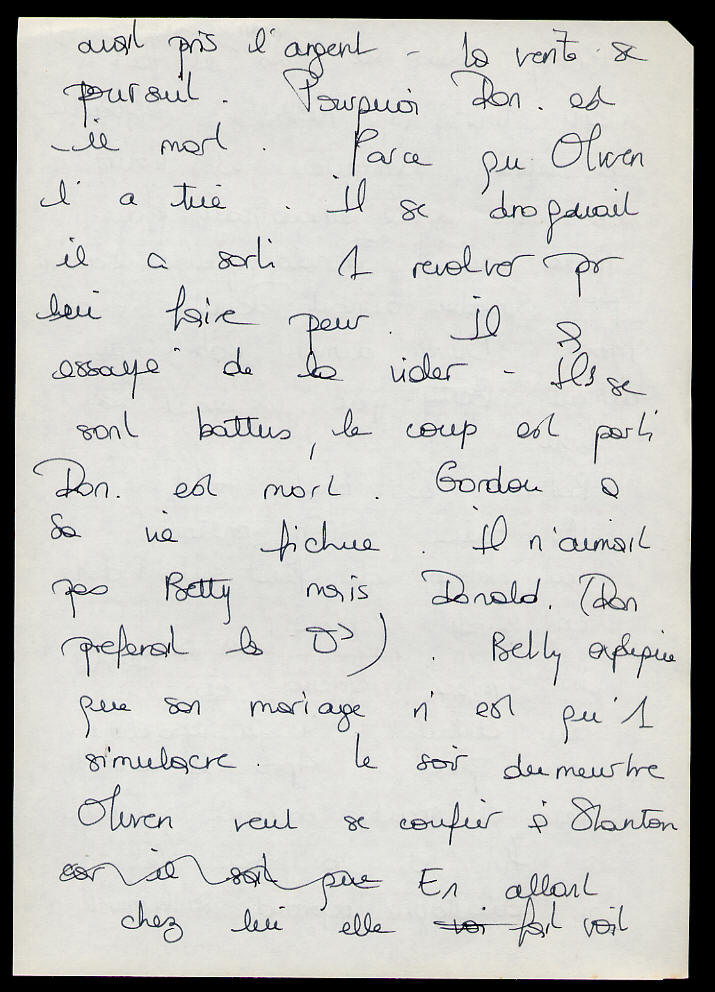 avait pris l'argent - la vente se
poursuit. Pourquoi Don. est
-il mort. Parce qu'Oliven
l'a tué. Il se droguait
il a sorti 1 revolver pr
lui faire peur. Il a
essayé de la vider - Ils se
sont battus, le coup est parti
Don. est mort. Gordon a
sa vie fichue. Il n'aimait
pas Betty mais Donald. (Don
preferait la
que son mariage n'est qu'1
simulacre. Le soir du meurtre
Oliven veut se confier à Stanton
car il sait que En allant
chez lui elle voi fait voit